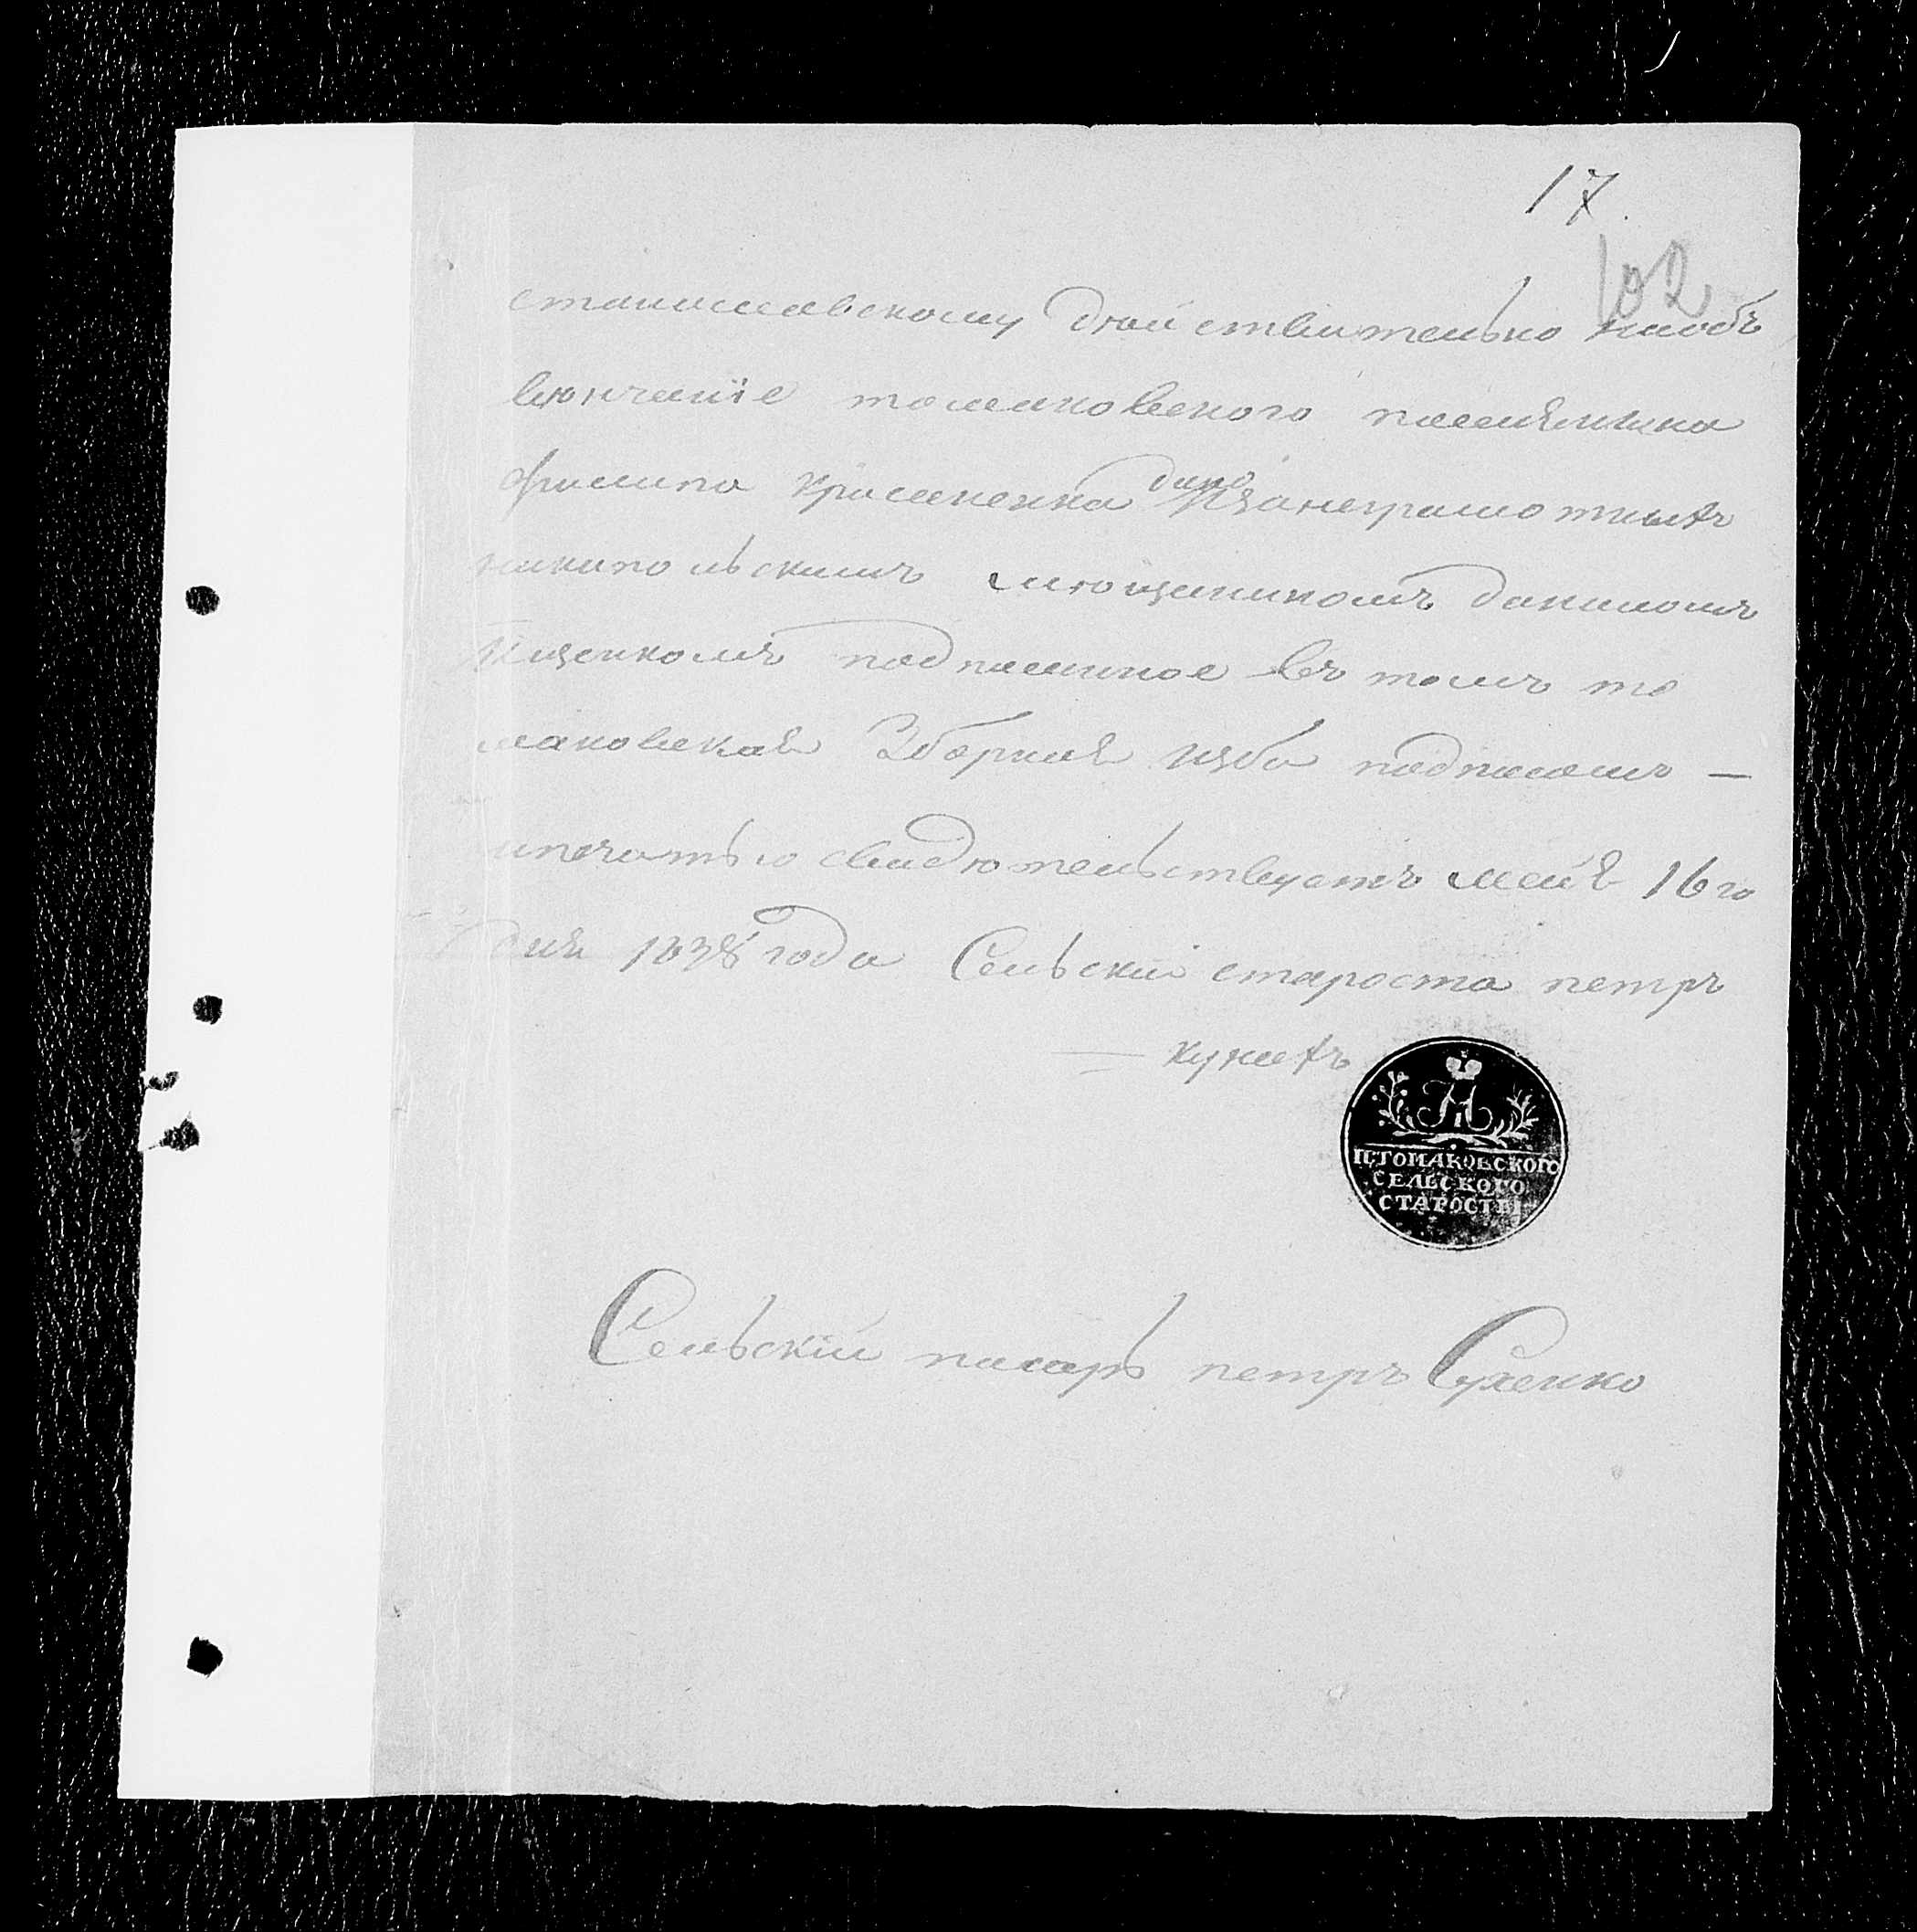 17.
102
станиславскому дюйствительно наобъ
вюнчаніе томаковского племяника
филипа крисаненка дано изанеграмотныхъ
никипольскимъ мющаникомъ даниломъ
Ищенкомъ подписанное въ томъ то
маковская Зборная изба подписомъ —
ипечатью свидютельствуетъ мая 16го
дня 1838 года Сельский староста петръ
кунахъ
ТОМАКОВСКОГО
СЕЛЬСКОГО
СТАРОСТЫ
Сельскій писарь петръ Сухенко